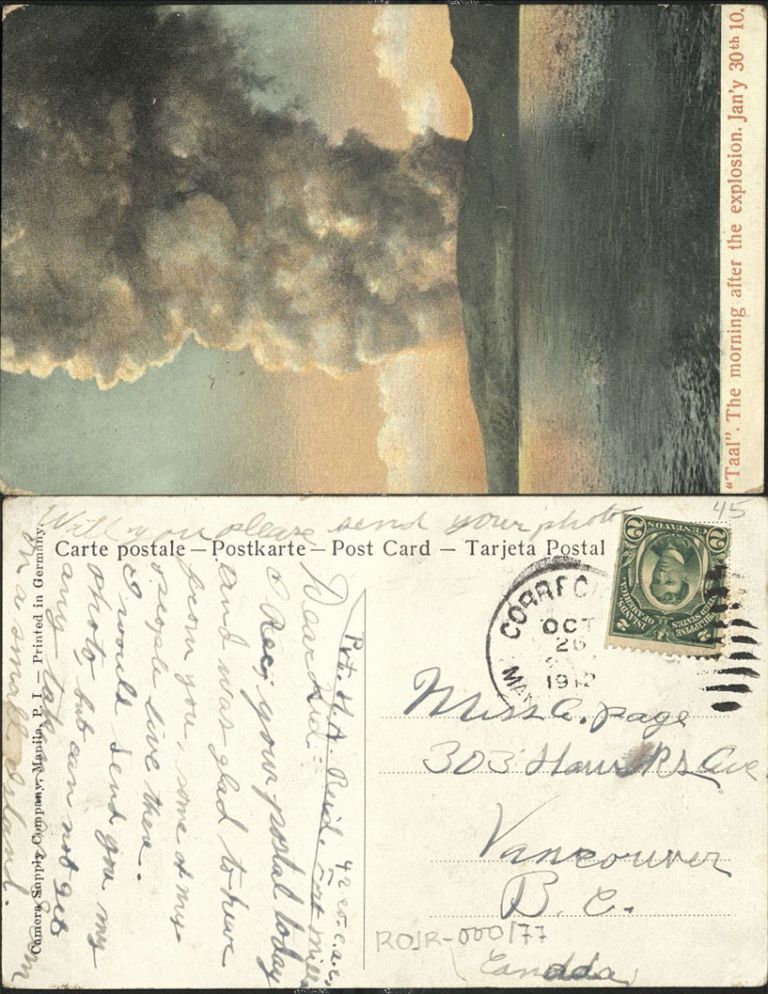 "Taal". The morning after the explosion. Jan'y 30th 10.
45
Will you please send your photo
Carte postale — Postkarte — Post Card — Tarjeta Postal
CORREO
MA
OCT
26
1912
2 CENTAVOS 2
Miss C. Page
303 Hawks Ave
Vancouver
B. C.
Canada
ROIR-000177
Pvt. H. A. Reid. 42 co. C.A.C.
Fort Mills
Dear
I Rec; your postal today
and was glad to have
from you, some of my
people live there.
I would send you my
photo but can not get
any taken I am
on a small island.
Camera Supply Company, Manila, P. I. — Printed in Germany.